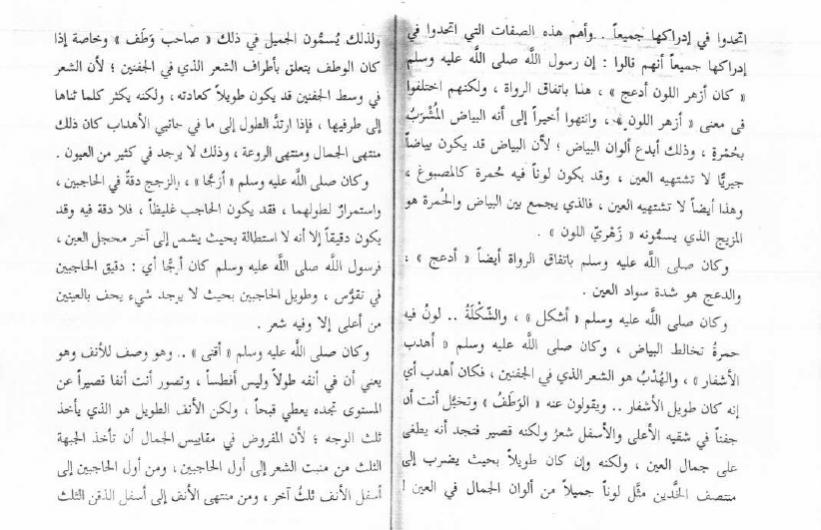 اتحدوا في إدراكها جميعاً .. وأهم هذه الصفات التي اتحدوا في
إدراكها جميعاً أنهم قالوا : إن رسول اللَّه صلى اللَّه عليه وسلم
« كان أزهر اللون أدعج » ، هذا باتفاق الرواة ، ولكنهم اختلفوا
فى معنى « أزهر اللون » ، وانتهوا أخيراً إلى أنه البياض المُشْرَبُ
بحُمْرةٍ ، وذلك أبدع ألوان البياض ؛ لأن البياض قد يكون بياضاً
جيريًّا لا تشتهيه العين ، وقد يكون لوناً فيه حُمرة كالمصبوغ ،
وهذا أيضاً لا تشتهيه العين ، فالذي يجمع بين البياض والحُمرة هو
المزيج الذي يسمُّونه « زَهْريّ اللون » .
وكان صلى اللَّه عليه وسلم باتفاق الرواة أيضاً « أدعج » ،
والدعج هو شدة سواد العين .
وكان صلى اللَّه عليه وسلم « أشكل » ، والشّكْلَةُ .. لونُ فيه
حمرةُ تخالط البياض ، وكان صلى اللَّه عليه وسلم « أهدب
الأشفار » ، والهُدْبُ هو الشعر الذي في الجفنين ، فكان أهدب أي
إنه كان طويل الأشفار .. ويقولون عنه « الوَطَفُ » وتخيَّل أنت أن
جفناً في شقيه الأعلى والأسفل شعرُ ولكنه قصير فتجد أنه يطغى
على جمال العين ، ولكنه وإن كان طويلاً بحيث يضرب إلى
منتصف الخَّدين مثَّل لوناً جميلاً من ألوان الجمال في العين !
ولذلك يُسمُّون الجميل في ذلك « صاحب وَطَف » وخاصة إذا
كان الوطف يتعلق بأطراف الشعر الذي في الجفنين ؛ لأن الشعر
في وسط الجفنين قد يكون طويلاً كعادته، ولكنه يكثر كلما تناها
إلى طرفيها ، فإذا ارتدَّ الطول إلى ما في جانبي الأهداب كان ذلك
منتهى الجمال ومنتهى الروعة ، وذلك لا يوجد في كثير من العيون .
وكان صلى اللَّه عليه وسلم « أزجًّا » ، والزجج دقةٌ في الحاجبين ،
واستمرارٌ لطولهما ، فقد يكون الحاجب غليظاً ، فلا دقة فيه وقد
يكون دقيقاً إلا أنه لا استطالة بحيث يشمل إلى آخر محجل العين ،
فرسول اللَّه صلى اللَّه عليه وسلم كان أزجًّا أي : دقيق الحاجبين
في تقوُّس ، وطويل الحاجبين بحيث لا يوجد شيء يحف بالعينين
من أعلى إلا وفيه شعر .
وكان صلى اللَّه عليه وسلم « أقنى » .. وهو وصف للأنف وهو
يعني أن في أنفه طولاً وليس أفطساً ، وتصور أنت أنفا قصيراً عن
المستوى تجده يعطي قبحاً ، ولكن الأنف الطويل هو الذي يأخذ
ثلث الوجه ؛ لأن المفروض في مقاييس الجمال أن تأخذ الجبهة
الثلث من منبت الشعر إلى أول الحاجبين ، ومن أول الحاجبين إلى
أسفل الأنف ثلثُ آخر ، ومن منتهى الأنف إلى أسفل الذقن الثلث